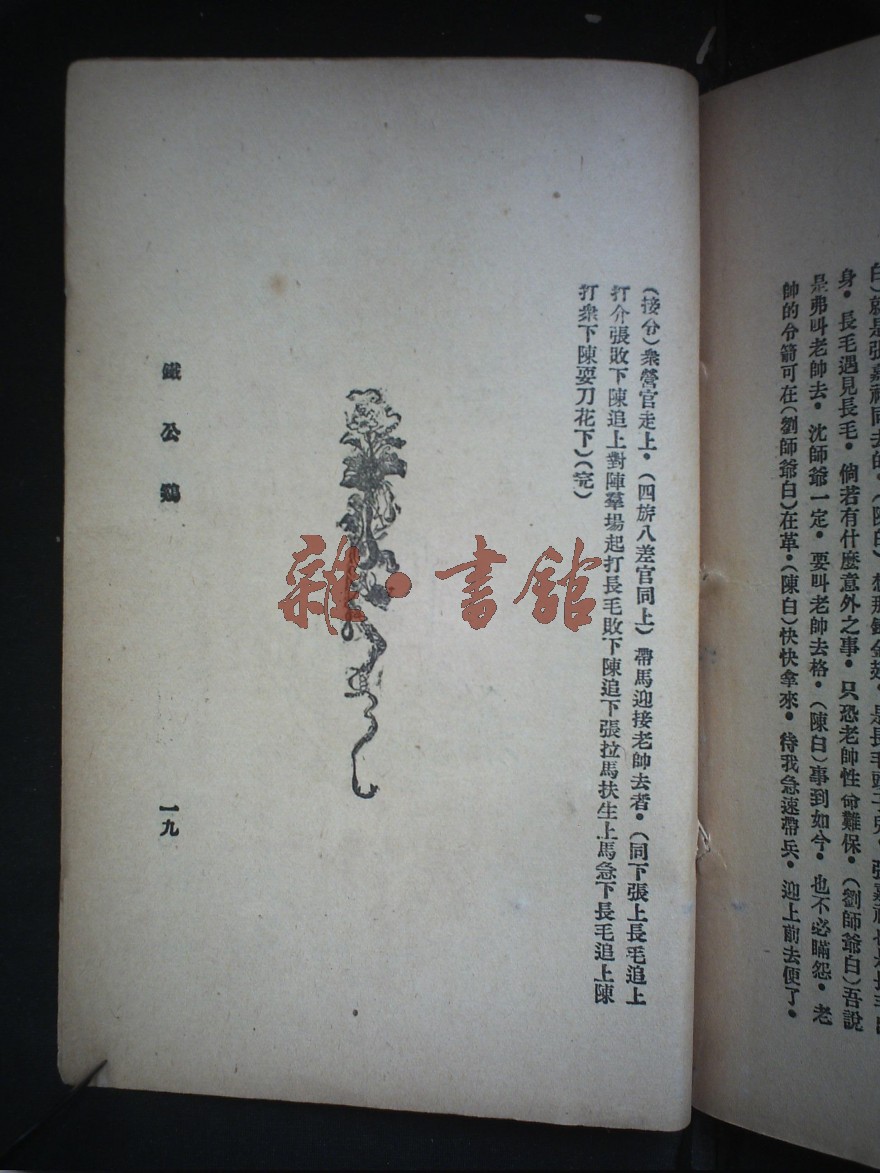 身．長毛遇見長毛．倘若有什麼意外之事．只恐老帥性命難保．(劉師爺白)吾說
是弗叫老帥去．沈師爺一定．要叫老帥去格．(陳白)事到如今．也不必瞞怨．老
帥的令箭可在(劉師爺白)在革．(陳白)快快拿來．待我急速帶兵．迎上前去便了．
(接分)衆營官走上．(四旂八差官同上)帶馬迎接老帥去者．(同下張上長毛追上
打介張敗下陳追上對陣羣場起打長毛敗下陳追下張拉馬扶生上馬急下長毛追上陳
打衆下陳耍刀花下)(完)
鐵公鷄
一九
雜·書館